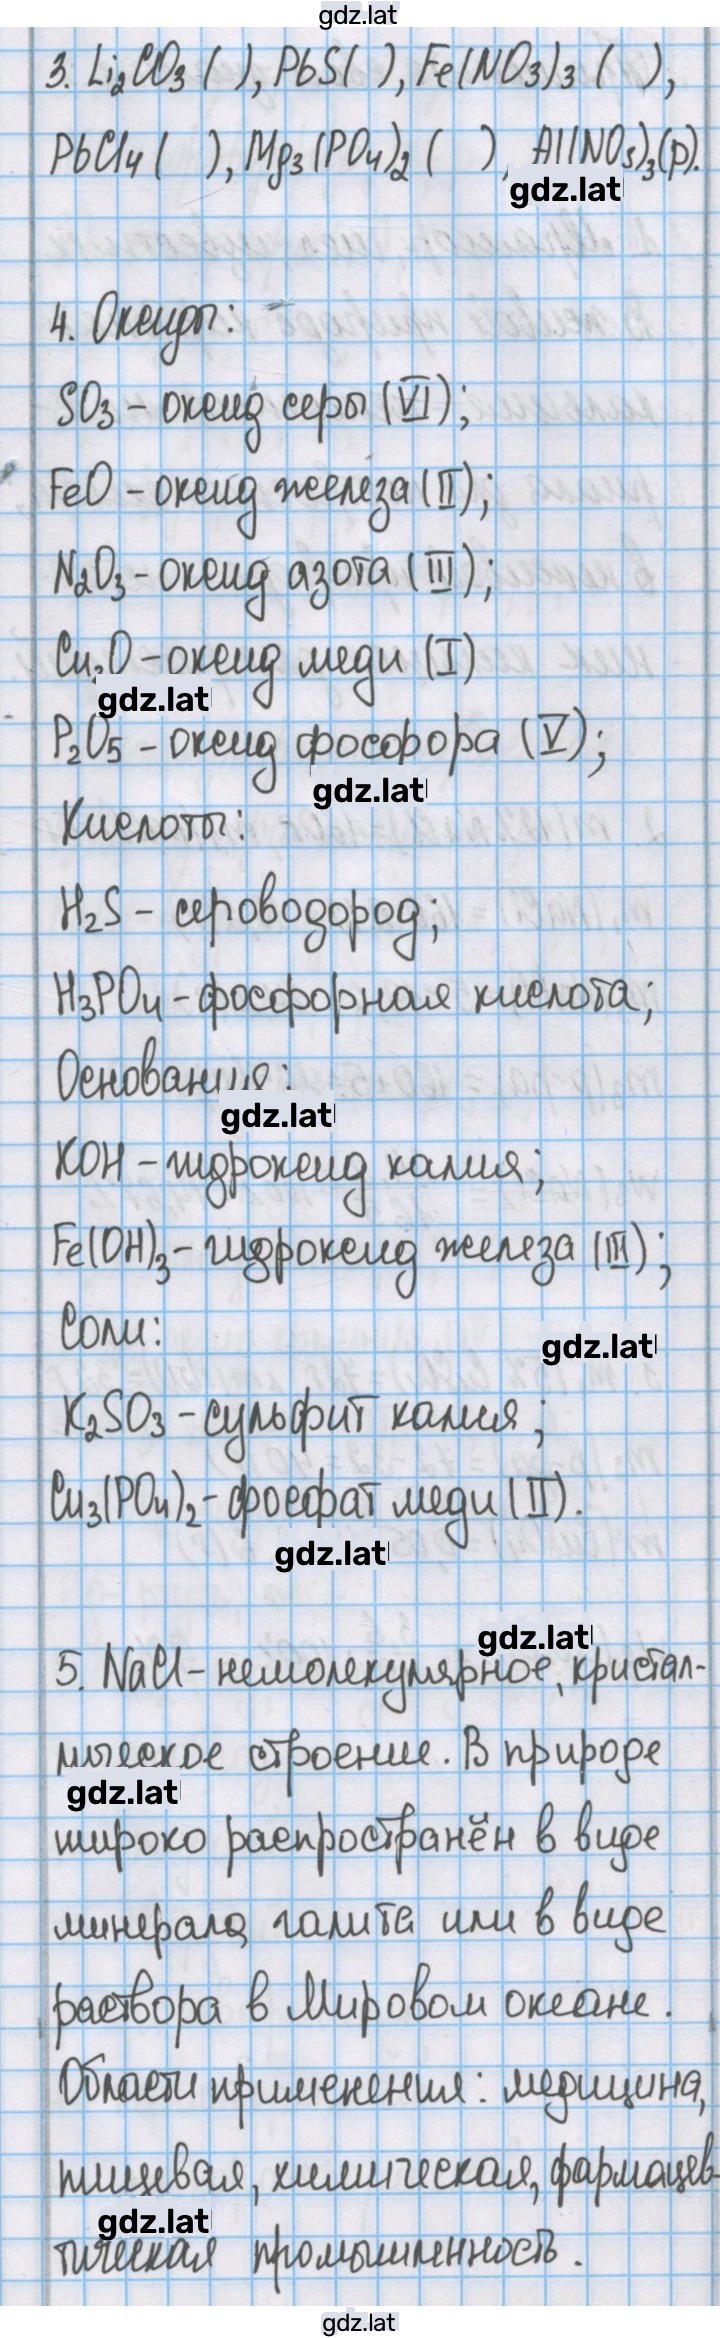 gdz.lat
3. Li₂CO₃ ( ), PbS( ), Fe(NO₃)₃ ( ),
PbCl₄ ( ), Mg₃(PO₄)₂ ( ), Al(NO₃)₃(р).
gdz.lat
4. Оксиды:
SO₃ – оксид серы (VI);
FeO – оксид железа (II);
N₂O₃ – оксид азота (III);
Cu₂O – оксид меди (I)
gdz.lat
P₂O₅ – оксид фосфора (V);
gdz.lat
Кислоты:
H₂S – сероводород;
H₃PO₄ – фосфорная кислота;
Основания:
gdz.lat
KOH – гидроксид калия;
Fe(OH)₃ – гидроксид железа (III);
Соли:
gdz.lat
K₂SO₃ – сульфит калия;
Cu₃(PO₄)₂ – фосфат меди (II).
gdz.lat
gdz.lat
5. NaCl – немолекулярное, кристал-
лическое строение. В природе
gdz.lat
широко распространён в виде
минерала галита или в виде
раствора в Мировом океане.
Области применения: медицина,
пищевая, химическая, фармацев-
gdz.lat
тическая промышленность.
gdz.lat